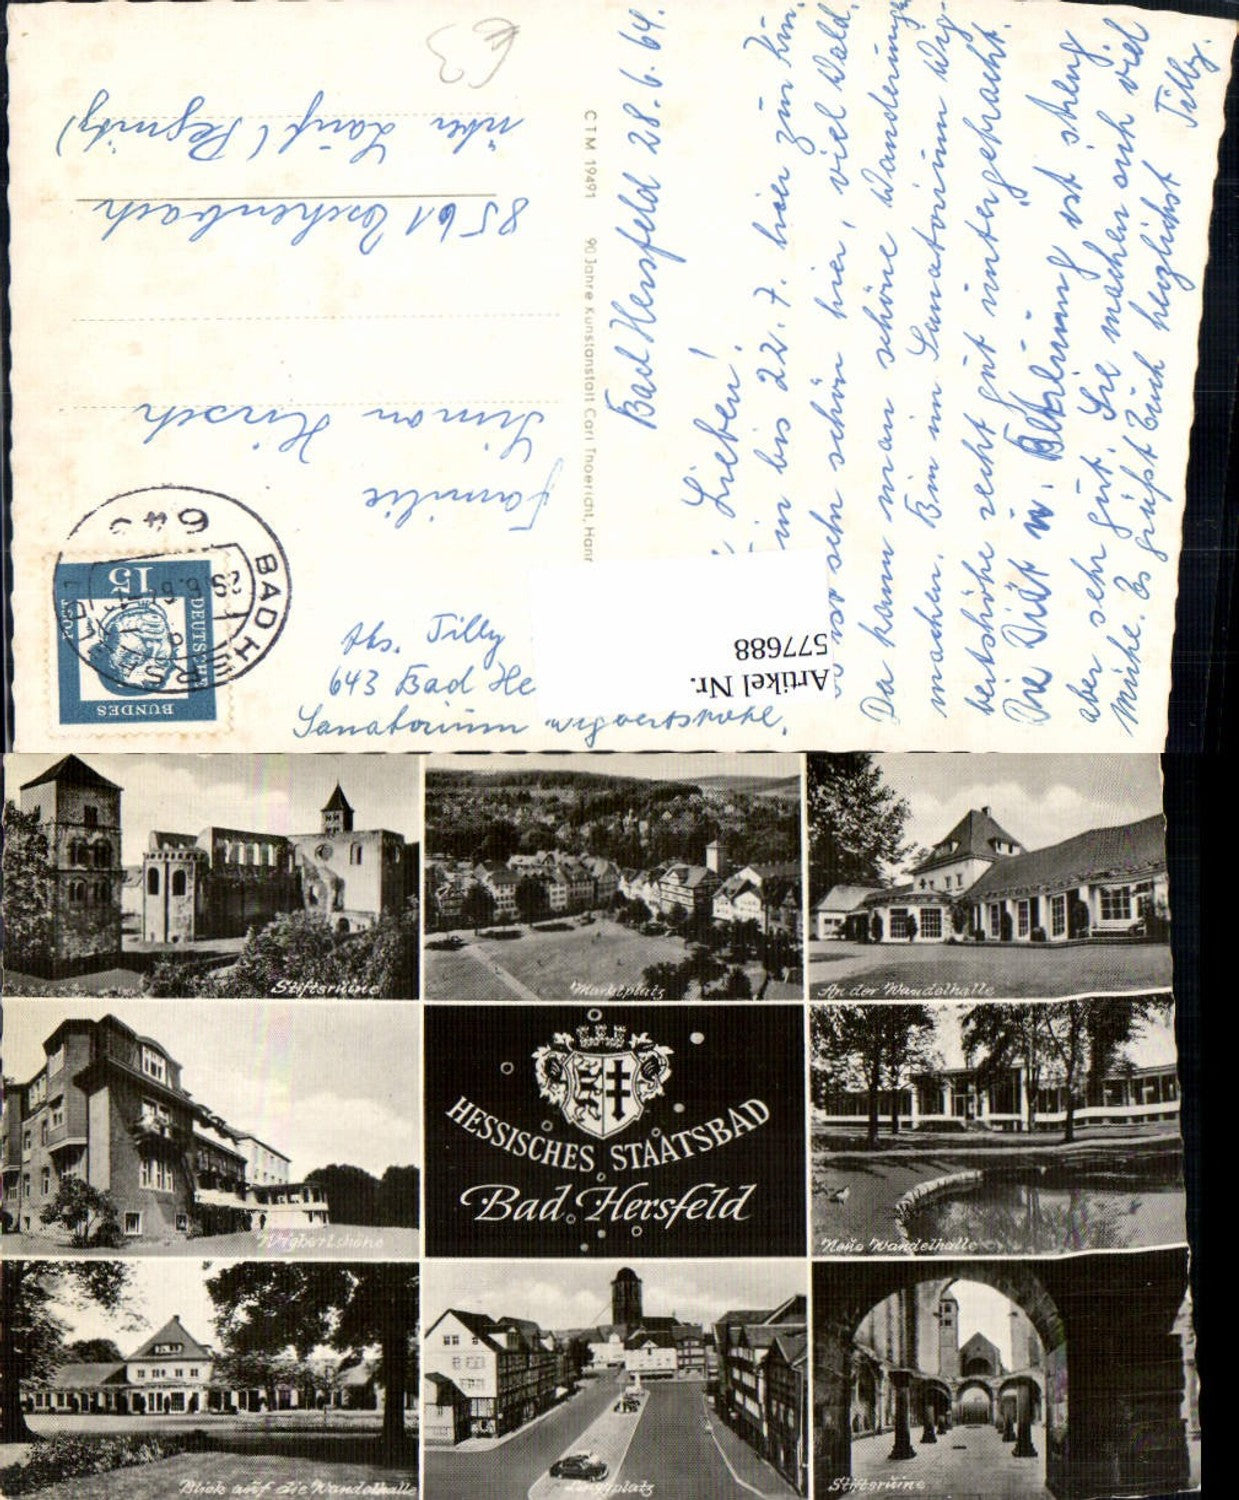 Bad Hersfeld 28.6.64.
Lieben!
in bis 22.7. hier zur Kur.
sehr schön hier, viel Wald.
Da kann man schöne Wanderungen
machen. Bin im Sanatorium Wig-
bertshöhe recht gut untergebracht.
Die Diät u. Betreuung ist streng
aber sehr gut. Sie machen sich viel
Mühe. Es grüßt Euch herzlichst
Tilly.
CTM 19491 90 Jahre Kunstanstalt Carl Thoericht, Hann
Familie
Simon Hirsch
8561 Eschenbach
über Lauf (Pegnitz)
Abs. Tilly
643 Bad He
Sanatorium Wigbertshöhe
DEUTSCHE
BUNDES
15
643
BAD HERSFELD
Artikel Nr.
577688
Stiftsruine
Marktplatz
An der Wandelhalle
Wigbertshöhe
HESSISCHES STAATSBAD
Bad Hersfeld
Neue Wandelhalle
Blick auf die Wandelhalle
Linggplatz
Stiftsruine